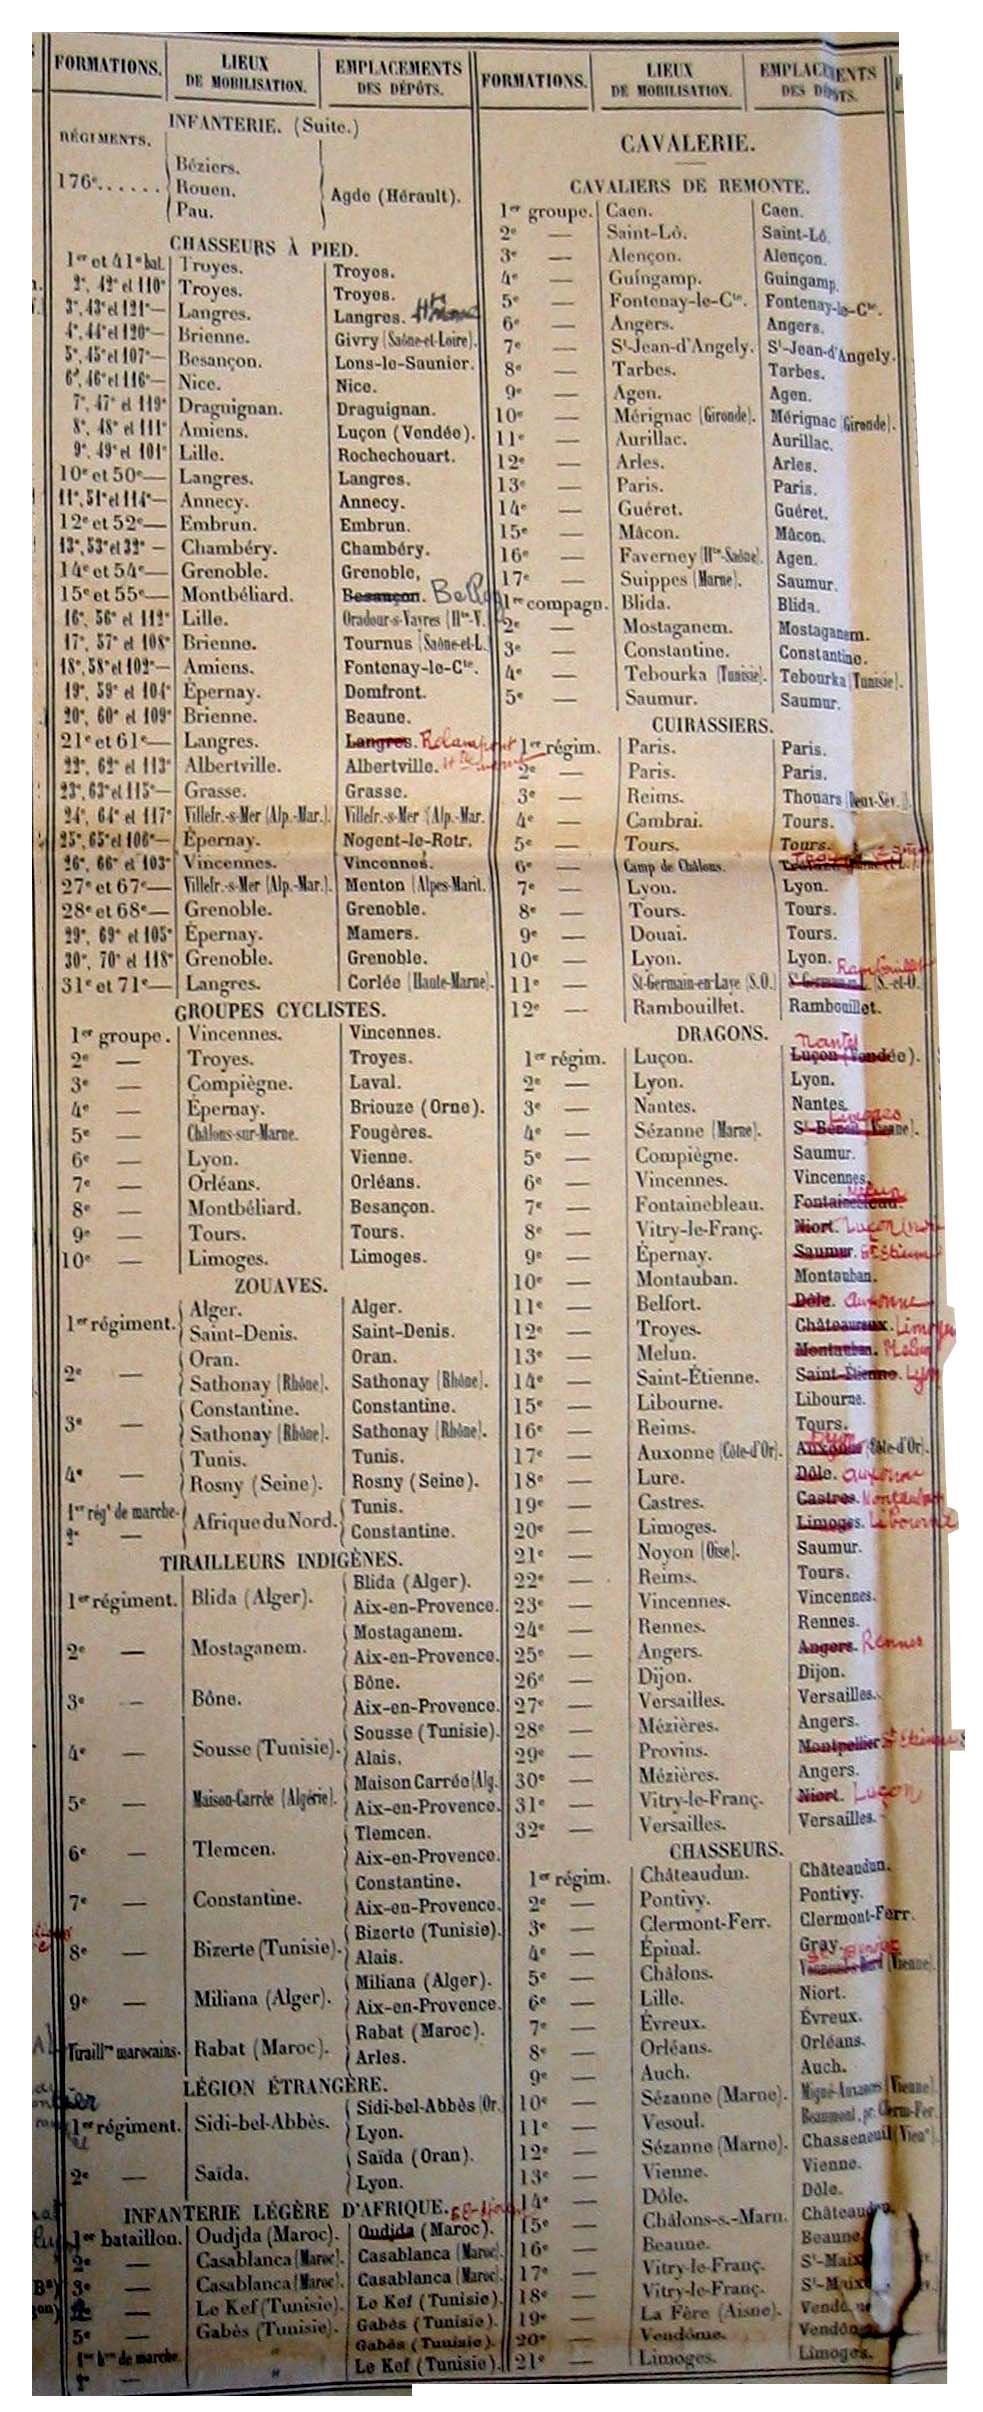 FORMATIONS. LIEUX DE MOBILISATION. EMPLACEMENTS DES DÉPÔTS.
INFANTERIE. (Suite.)
RÉGIMENTS.
176e...... Béziers. Rouen. Pau. Agde (Hérault).
CHASSEURS À PIED.
1er et 41e bat. Troyes. Troyes.
2e, 42e et 110e Troyes. Troyes.
3e, 43e et 121e— Langres. Langres.
4e, 44e et 120e— Brienne. Givry (Saône-et-Loire).
5e, 45e et 107e— Besançon. Lons-le-Saunier.
6e, 46e et 116e— Nice. Nice.
7e, 47e et 119e Draguignan. Draguignan.
8e, 48e et 111e Amiens. Luçon (Vendée).
9e, 49e et 101e Lille. Rochechouart.
10e et 50e— Langres. Langres.
11e, 51e et 114e— Annecy. Annecy.
12e et 52e— Embrun. Embrun.
13e, 53e et 32e — Chambéry. Chambéry.
14e et 54e— Grenoble. Grenoble.
15e et 55e— Montbéliard. Besançon.
16e, 56e et 112e Lille. Oradour-s-Vayres (Hte-V.
17e, 57e et 108e Brienne. Tournus (Saône-et-L.
18e, 58e et 102e— Amiens. Fontenay-le-Cte.
19e, 59e et 104e Épernay. Domfront.
20e, 60e et 109e Brienne. Beaune.
21e et 61e— Langres. Langres. Rolampont
22e, 62e et 113e Albertville. Albertville.
23e, 63e et 115e— Grasse. Grasse.
24e, 64e et 117e Villefr.-s-Mer (Alp.-Mar.). Villefr.-s-Mer (Alp.-Mar.
25e, 65e et 106e— Épernay. Nogent-le-Rotr.
26e, 66e et 103e Vincennes. Vincennes.
27e et 67e— Villefr.-s-Mer (Alp.-Mar.). Menton (Alpes-Marit.
28e et 68e— Grenoble. Grenoble.
29e, 69e et 105e Épernay. Mamers.
30e, 70e et 118e Grenoble. Grenoble.
31e et 71e— Langres. Corlée (Haute-Marne).
GROUPES CYCLISTES.
1er groupe. Vincennes. Vincennes.
2e — Troyes. Troyes.
3e — Compiègne. Laval.
4e — Épernay. Briouze (Orne).
5e — Châlons-sur-Marne. Fougères.
6e — Lyon. Vienne.
7e — Orléans. Orléans.
8e — Montbéliard. Besançon.
9e — Tours. Tours.
10e — Limoges. Limoges.
ZOUAVES.
1er régiment. Alger. Alger.
Saint-Denis. Saint-Denis.
2e — Oran. Oran.
Sathonay (Rhône). Sathonay (Rhône).
3e — Constantine. Constantine.
Sathonay (Rhône). Sathonay (Rhône).
4e — Tunis. Tunis.
Rosny (Seine). Rosny (Seine).
1er régt de marche. Afrique du Nord. Tunis.
2e — Constantine.
TIRAILLEURS INDIGÈNES.
1er régiment. Blida (Alger). Blida (Alger).
Aix-en-Provence.
2e — Mostaganem. Mostaganem.
Aix-en-Provence.
3e — Bône. Bône.
Aix-en-Provence.
4e — Sousse (Tunisie). Sousse (Tunisie).
Alais.
5e — Maison-Carrée (Algérie). Maison Carrée (Alg.
Aix-en-Provence.
6e — Tlemcen. Tlemcen.
Aix-en-Provence.
7e — Constantine. Constantine.
Aix-en-Provence.
8e — Bizerte (Tunisie). Bizerte (Tunisie).
Alais.
9e — Miliana (Alger). Miliana (Alger).
Aix-en-Provence.
Tiraillrs marocains. Rabat (Maroc). Rabat (Maroc).
Arles.
LÉGION ÉTRANGÈRE.
1er régiment. Sidi-bel-Abbès. Sidi-bel-Abbès (Or.
Lyon.
2e — Saïda. Saïda (Oran).
Lyon.
INFANTERIE LÉGÈRE D'AFRIQUE.
1er bataillon. Oudjda (Maroc). Oudjda (Maroc).
2e — Casablanca (Maroc). Casablanca (Maroc).
3e — Casablanca (Maroc). Casablanca (Maroc).
— Le Kef (Tunisie). Le Kef (Tunisie).
5e — Gabès (Tunisie). Gabès (Tunisie).
1er bon de marche. " Gabès (Tunisie).
— " Le Kef (Tunisie).
FORMATIONS. LIEUX DE MOBILISATION. EMPLACEMENTS DES DÉPÔTS.
CAVALERIE.
CAVALIERS DE REMONTE.
1er groupe. Caen. Caen.
2e — Saint-Lô. Saint-Lô.
3e — Alençon. Alençon.
4e — Guingamp. Guingamp.
5e — Fontenay-le-Cte. Fontenay-le-Cte.
6e — Angers. Angers.
7e — St-Jean-d'Angely. St-Jean-d'Angely.
8e — Tarbes. Tarbes.
9e — Agen. Agen.
10e — Mérignac (Gironde). Mérignac (Gironde).
11e — Aurillac. Aurillac.
12e — Arles. Arles.
13e — Paris. Paris.
14e — Guéret. Guéret.
15e — Mâcon. Mâcon.
16e — Faverney (Hte-Saône). Agen.
17e — Suippes (Marne). Saumur.
1re compagn. Blida. Blida.
2e — Mostaganem. Mostaganem.
3e — Constantine. Constantine.
4e — Tebourka (Tunisie). Tebourka (Tunisie).
5e — Saumur. Saumur.
CUIRASSIERS.
1er régim. Paris. Paris.
2e — Paris. Paris.
3e — Reims. Thouars (Deux-Sèv.).
4e — Cambrai. Tours.
5e — Tours. Tours.
6e — Camp de Châlons.
7e — Lyon. Lyon.
8e — Tours. Tours.
9e — Douai. Tours.
10e — Lyon. Lyon.
11e — St-Germain-en-Laye (S.O.) Rambouillet (S.-et-O.
12e — Rambouillet. Rambouillet.
DRAGONS.
1er régim. Luçon. Nantes Luçon (Vendée).
2e — Lyon. Lyon.
3e — Nantes. Nantes.
4e — Sézanne (Marne). Limoges St-Benoît (Vienne).
5e — Compiègne. Saumur.
6e — Vincennes. Vincennes.
7e — Fontainebleau. Melun Fontainebleau.
8e — Vitry-le-Franç. Niort. Luçon
9e — Épernay. Saumur. St Etienne
10e — Montauban. Montauban.
11e — Belfort. Dôle. Auxonne
12e — Troyes. Châteauroux. Limoges
13e — Melun. Montauban. Melun
14e — Saint-Étienne. Saint-Étienne. Lyon
15e — Libourne. Libourne.
16e — Reims. Tours.
17e — Auxonne (Côte-d'Or). Dijon Auxonne (Côte-d'Or).
18e — Lure. Dôle. Auxonne
19e — Castres. Castres. Montauban
20e — Limoges. Limoges. Libourne
21e — Noyon (Oise). Saumur.
22e — Reims. Tours.
23e — Vincennes. Vincennes.
24e — Rennes. Rennes.
25e — Angers. Angers. Rennes
26e — Dijon. Dijon.
27e — Versailles. Versailles.
28e — Mézières. Angers.
29e — Provins. Montpellier St Etienne
30e — Mézières. Angers.
31e — Vitry-le-Franç. Niort. Luçon
32e — Versailles. Versailles.
CHASSEURS.
1er régim. Châteaudun. Châteaudun.
2e — Pontivy. Pontivy.
3e — Clermont-Ferr. Clermont-Ferr.
4e — Épinal. Gray.
5e — Châlons. (Vienne).
6e — Lille. Niort.
7e — Évreux. Évreux.
8e — Orléans. Orléans.
9e — Auch. Auch.
10e — Sézanne (Marne). Migné-Auxances (Vienne).
11e — Vesoul. Beaumont, pr. Clerm-Fer.
12e — Sézanne (Marne). Chasseneuil (Viene).
13e — Vienne. Vienne.
14e — Dôle. Dôle.
15e — Châlons-s.-Marn. Châteaudun.
16e — Beaune. Beaune
17e — Vitry-le-Franç. St-Maix
18e — Vitry-le-Franç. St-Maix
19e — La Fère (Aisne). Vendôme
20e — Vendôme. Vendôm
21e — Limoges. Limoges.